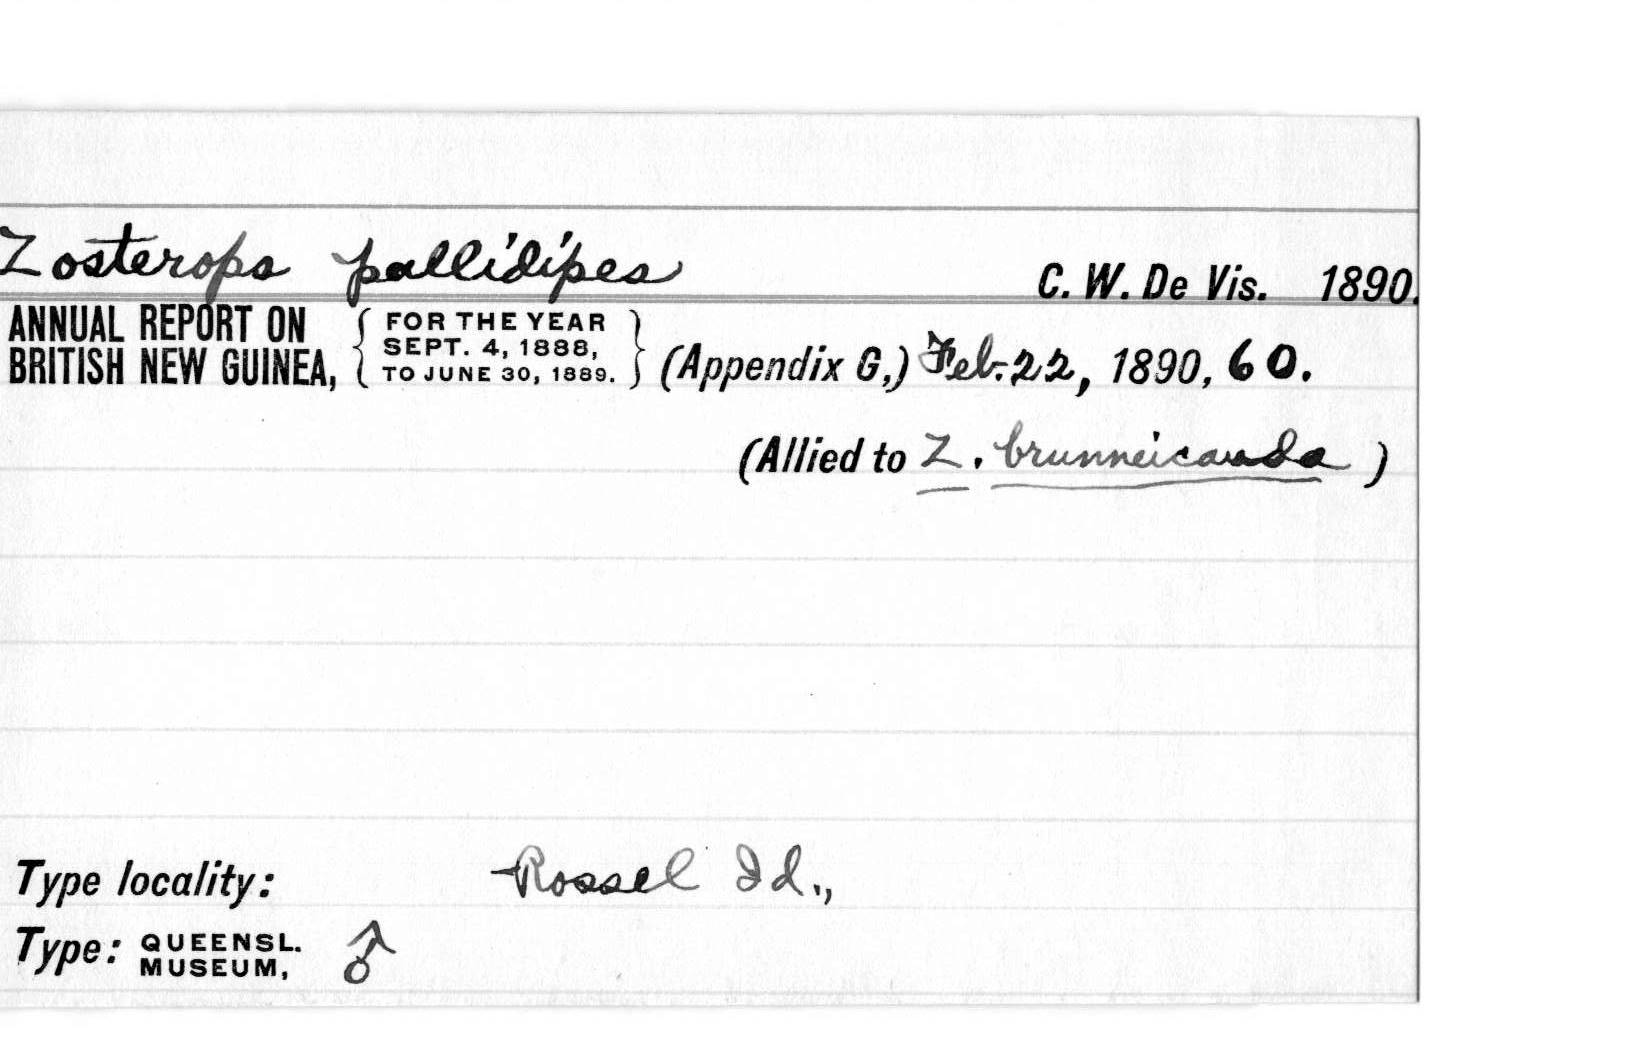 Zosterops pallidipes C. W. De Vis. 1890.
ANNUAL REPORT ON BRITISH NEW GUINEA, { FOR THE YEAR SEPT. 4, 1888, TO JUNE 30, 1889. } (Appendix G,) Feb. 22, 1890, 60.
(Allied to Z. brunneicauda )
Type locality: Rossel Id.,
Type: QUEENSL. MUSEUM, ♂